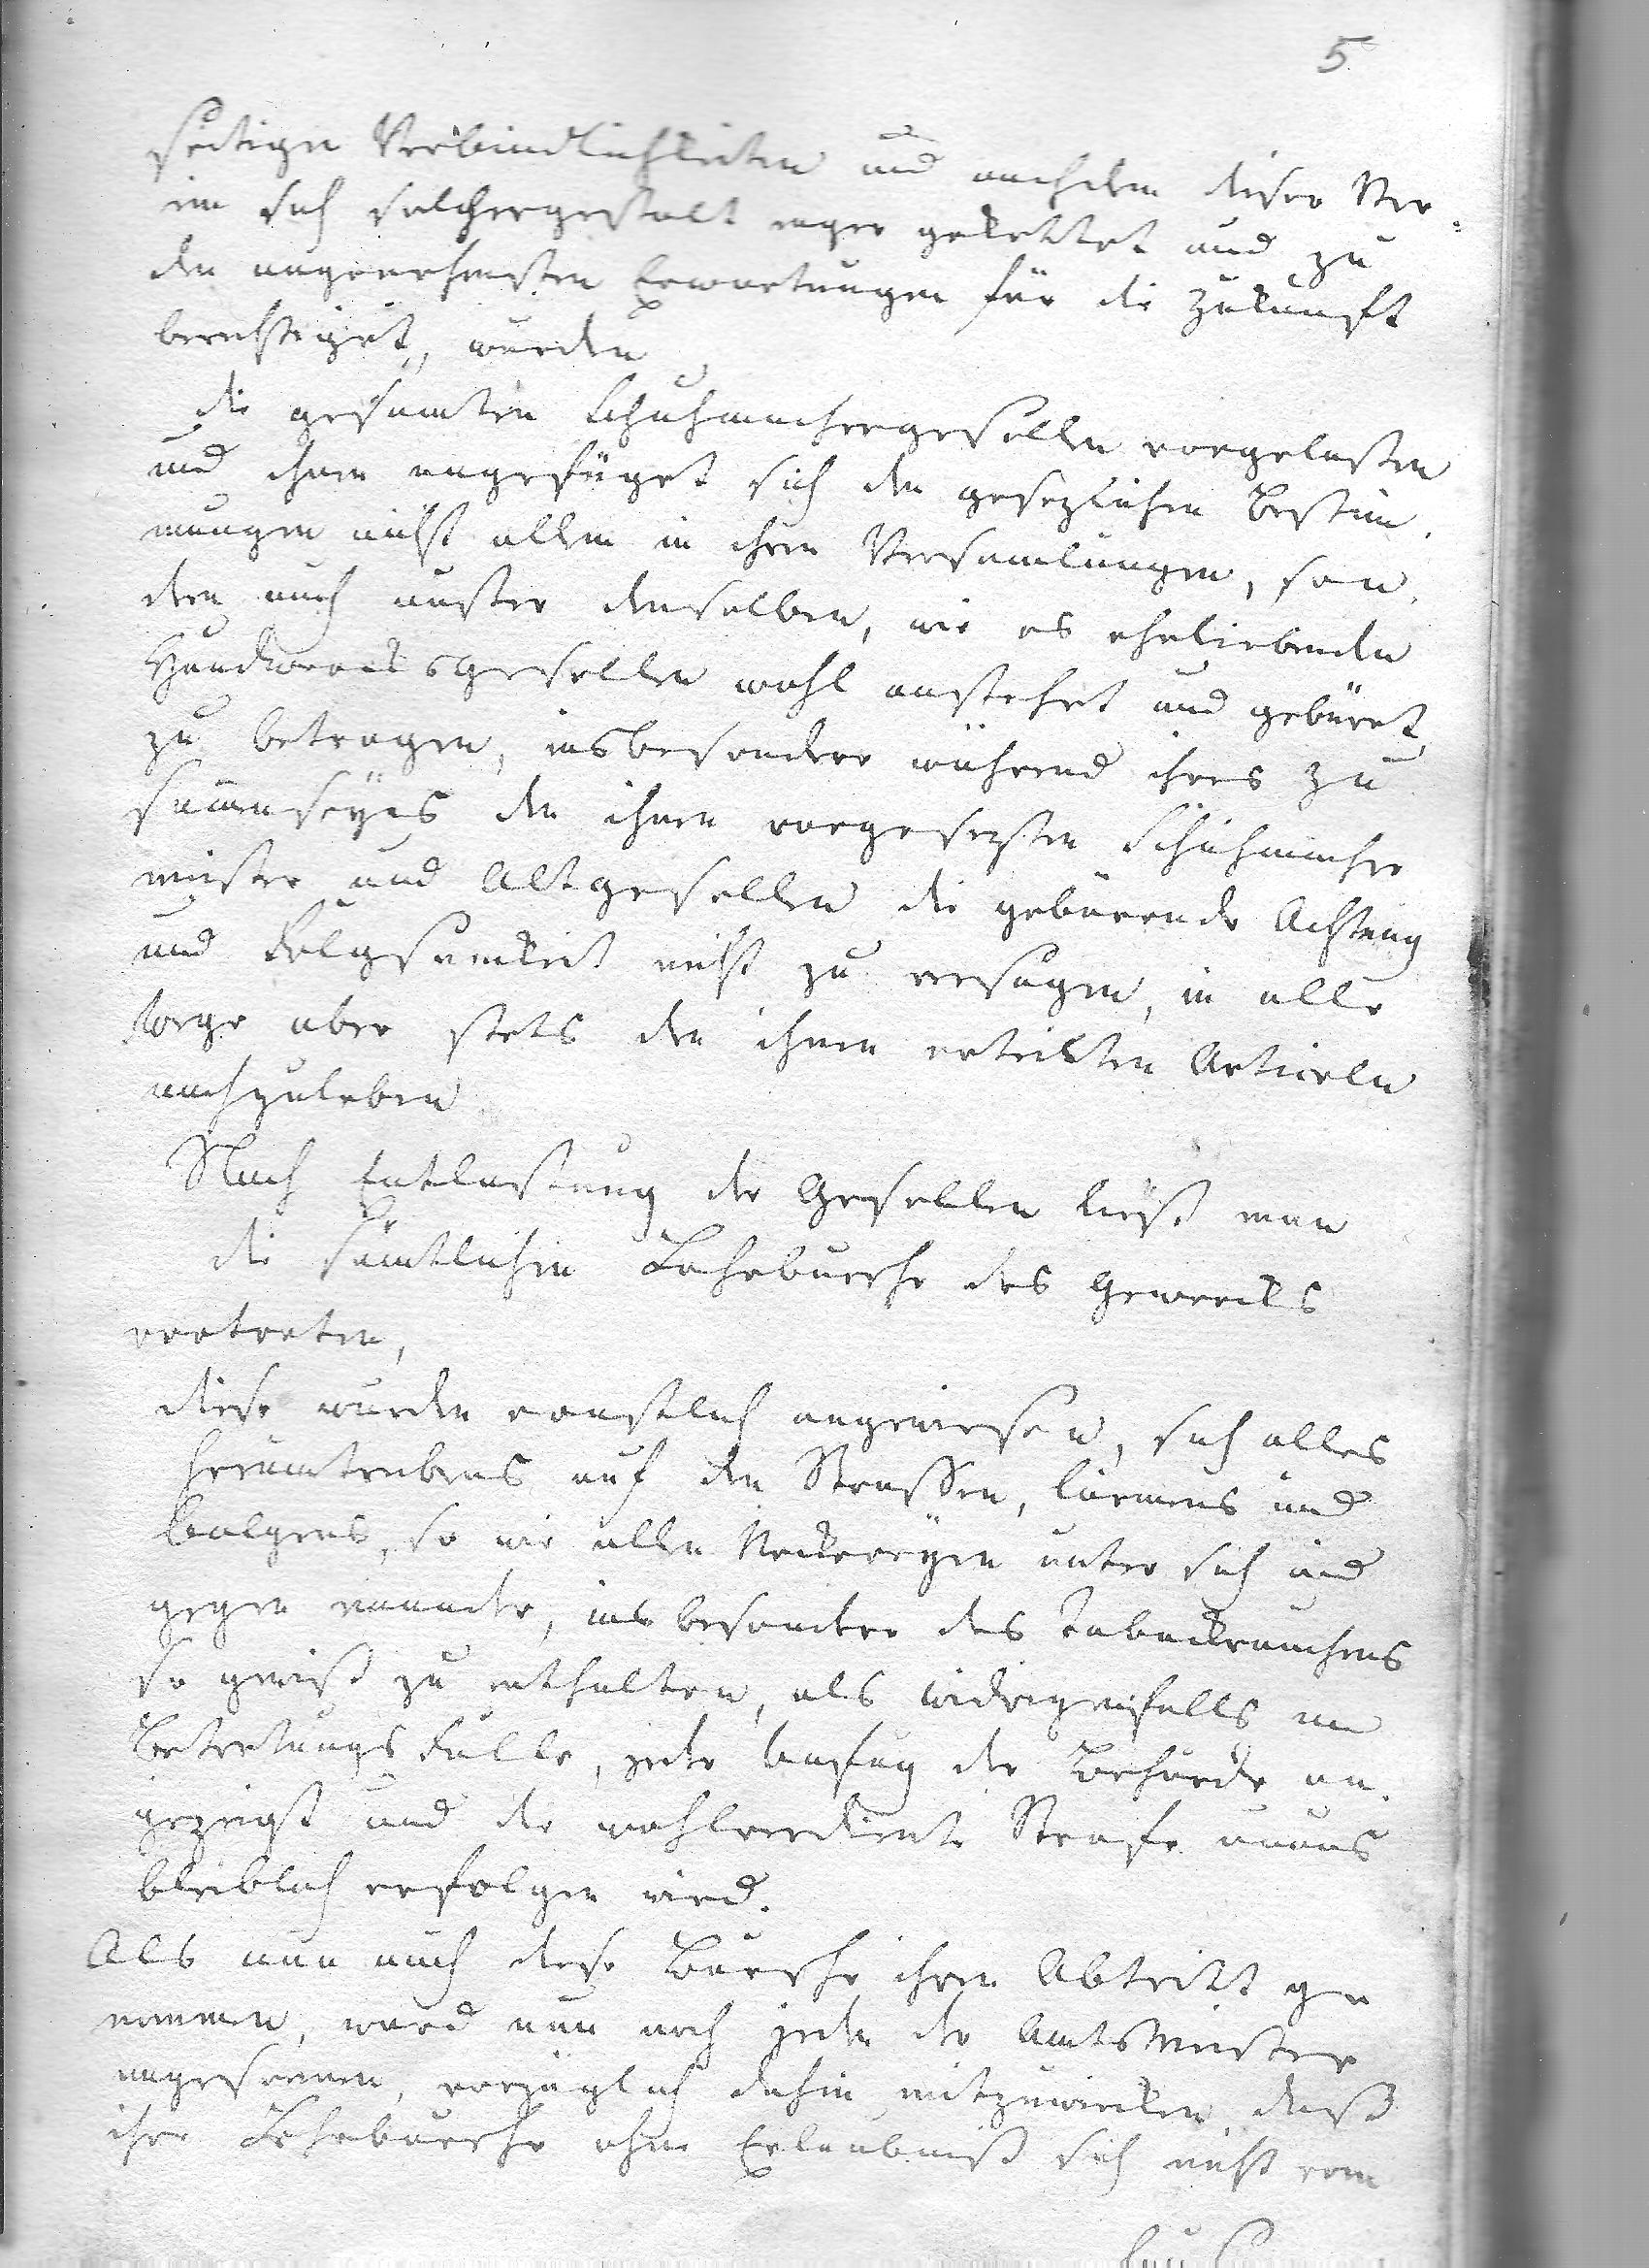 5
seitigen Verbindlichkeiten und nachdem dieser Ver-
ein sich solchergestalt enger gekettet und zu
den angenehmsten Erwartungen für die Zukunft
berechtiget, wurden
die gesamten Schuhmachergesellen vorgelaßen
und ihnen angefüget sich den gesezlichen Bestim-
mungen nicht allein in ihren Versamlungen, son-
dern auch außer denselben, wie es ehrliebenden
Handwerksgesellen wohl anstehet und gebüret,
zu betragen, insbesondere während ihres Zu
samenseyns den ihnen vorgesezten Schuhmacher
meister und Altgesellen die gebürende Achtung
und Folgsamkeit nicht zu versagen, in alle
Wege aber stets den ihnen erteilten Articeln
nachzuleben
Nach Entlaßung der Gesellen ließ man
die sämtlichen Lehrbursche des Gewerks
vortreten,
diese wurden ernstlich angewiesen, sich alles
herumtreibens auf den Strassen, lärmens und
balgens, so wie aller Neckereyen unter sich und
gegen einander, ins besondere des Tabackrauchens
so gewiß zu enthalten, als widrigenfalls im
Betretungs Falle, jeder Unfug der Behörde an-
gezeigt und die wohlverdiente Strafe unaus
bleiblich erfolgen wird.
Als nun auch diese Bursche ihren Abtritt ge
nommen, ward nun noch jeder der AmtsMeister
angesonnen, vorzüglich dahin mitzuwirken daß
ihre Lehrbursche ohne Erlaubniß sich nicht vom